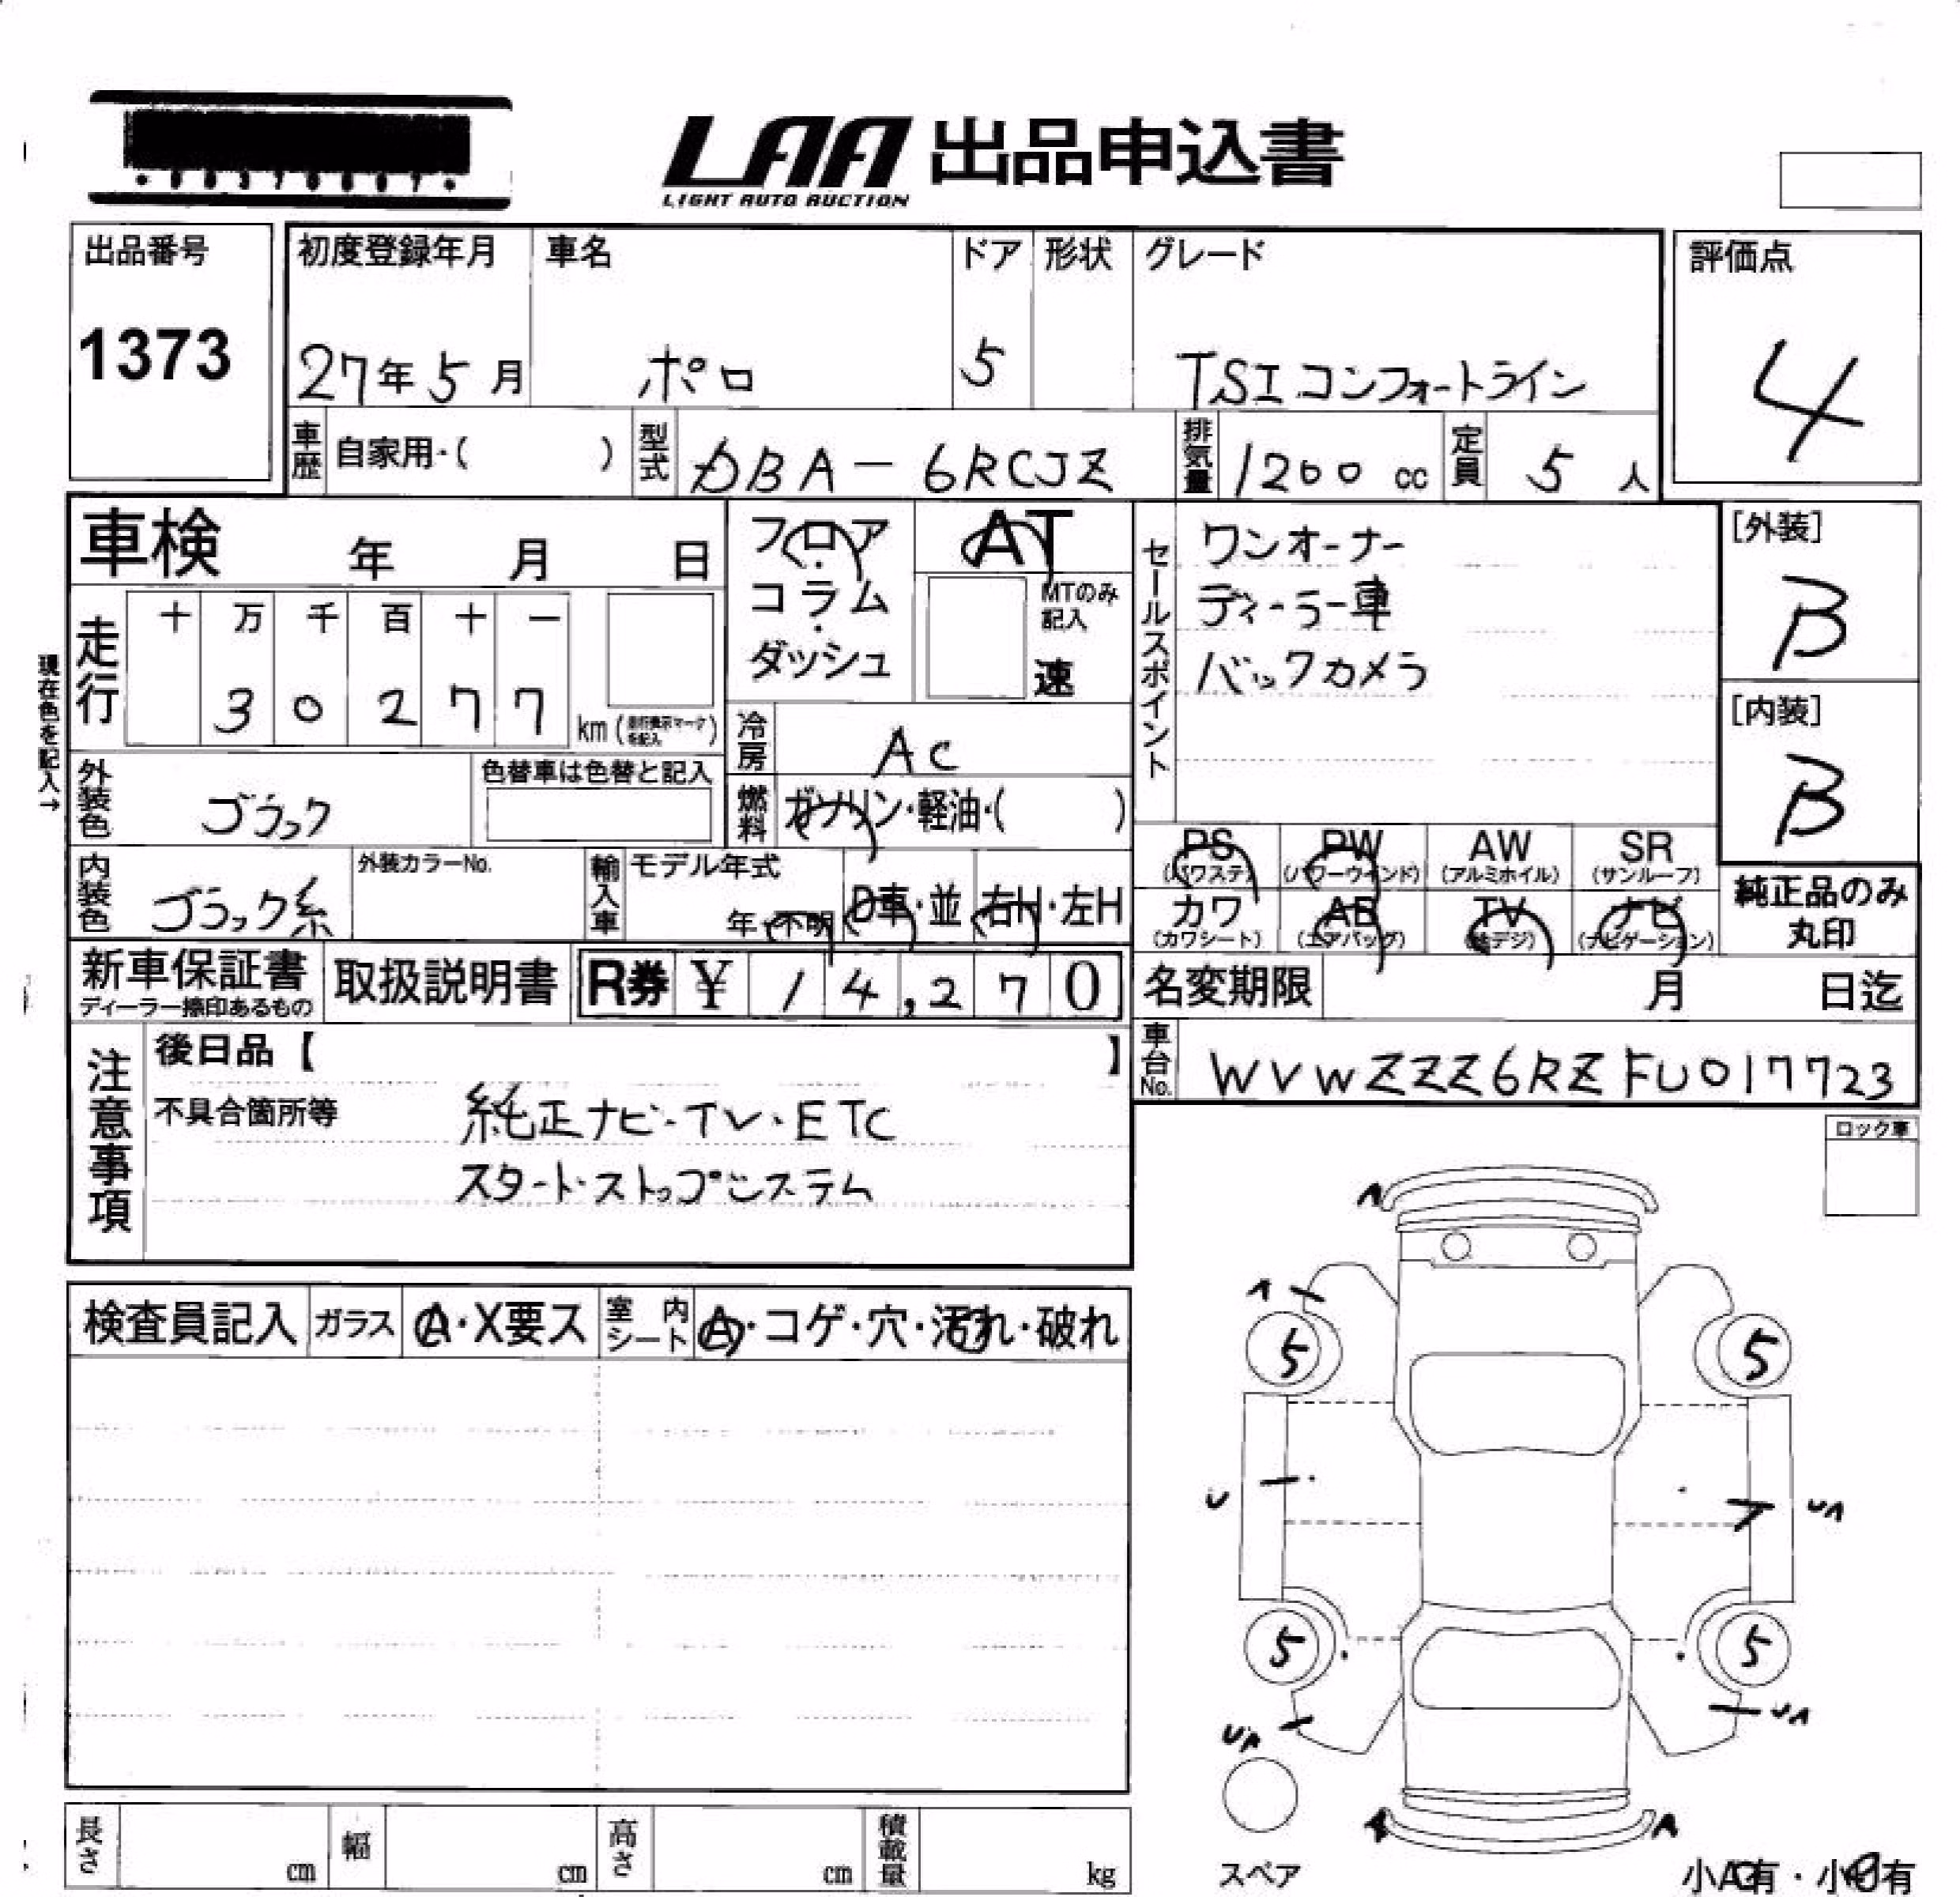 LAA 出品申込書
LIGHT AUTO AUCTION
出品番号
1373
初度登録年月
27年5月
車名
ポロ
ドア
5
形状
グレード
TSI コンフォートライン
評価点
4
車歴 自家用・( )
型式 DBA-6RCJZ
排気量 1200 cc
定員 5 人
車検 年 月 日
フロア・コラム・ダッシュ
AT
MTのみ記入
速
セールスポイント
ワンオーナー
ディーラー車
バックカメラ
[外装]
B
[内装]
B
現在色を記入→
走行 十 万 千 百 十 一
3 0 2 7 7 km (走行表示マークを記入)
冷房 AC
外装色 ブラック
色替車は色替と記入
燃料 ガソリン・軽油・( )
内装色 ブラック系
外装カラーNo.
輸入車 モデル年式 年・不明
D車・並
右H・左H
PS (パワステ)
PW (パワーウインド)
AW (アルミホイル)
SR (サンルーフ)
カワ (カワシート)
AB (エアバッグ)
TV (地デジ)
ナビ (ナビゲーション)
純正品のみ丸印
新車保証書
ディーラー捺印あるもの
取扱説明書
R券 ¥ 14,270
名変期限 月 日迄
車台No. WVWZZZ6RZFU017723
注意事項
後日品【 】
不具合箇所等
純正ナビ・TV・ETC
スタート・ストップシステム
ロック車
検査員記入
ガラス A・X要ス
室内シート A・コゲ・穴・汚れ・破れ
A
A
5
5
U
UA
5
5
UA
UA
A
A
スペア
長さ cm
幅 cm
高さ cm
積載量 kg